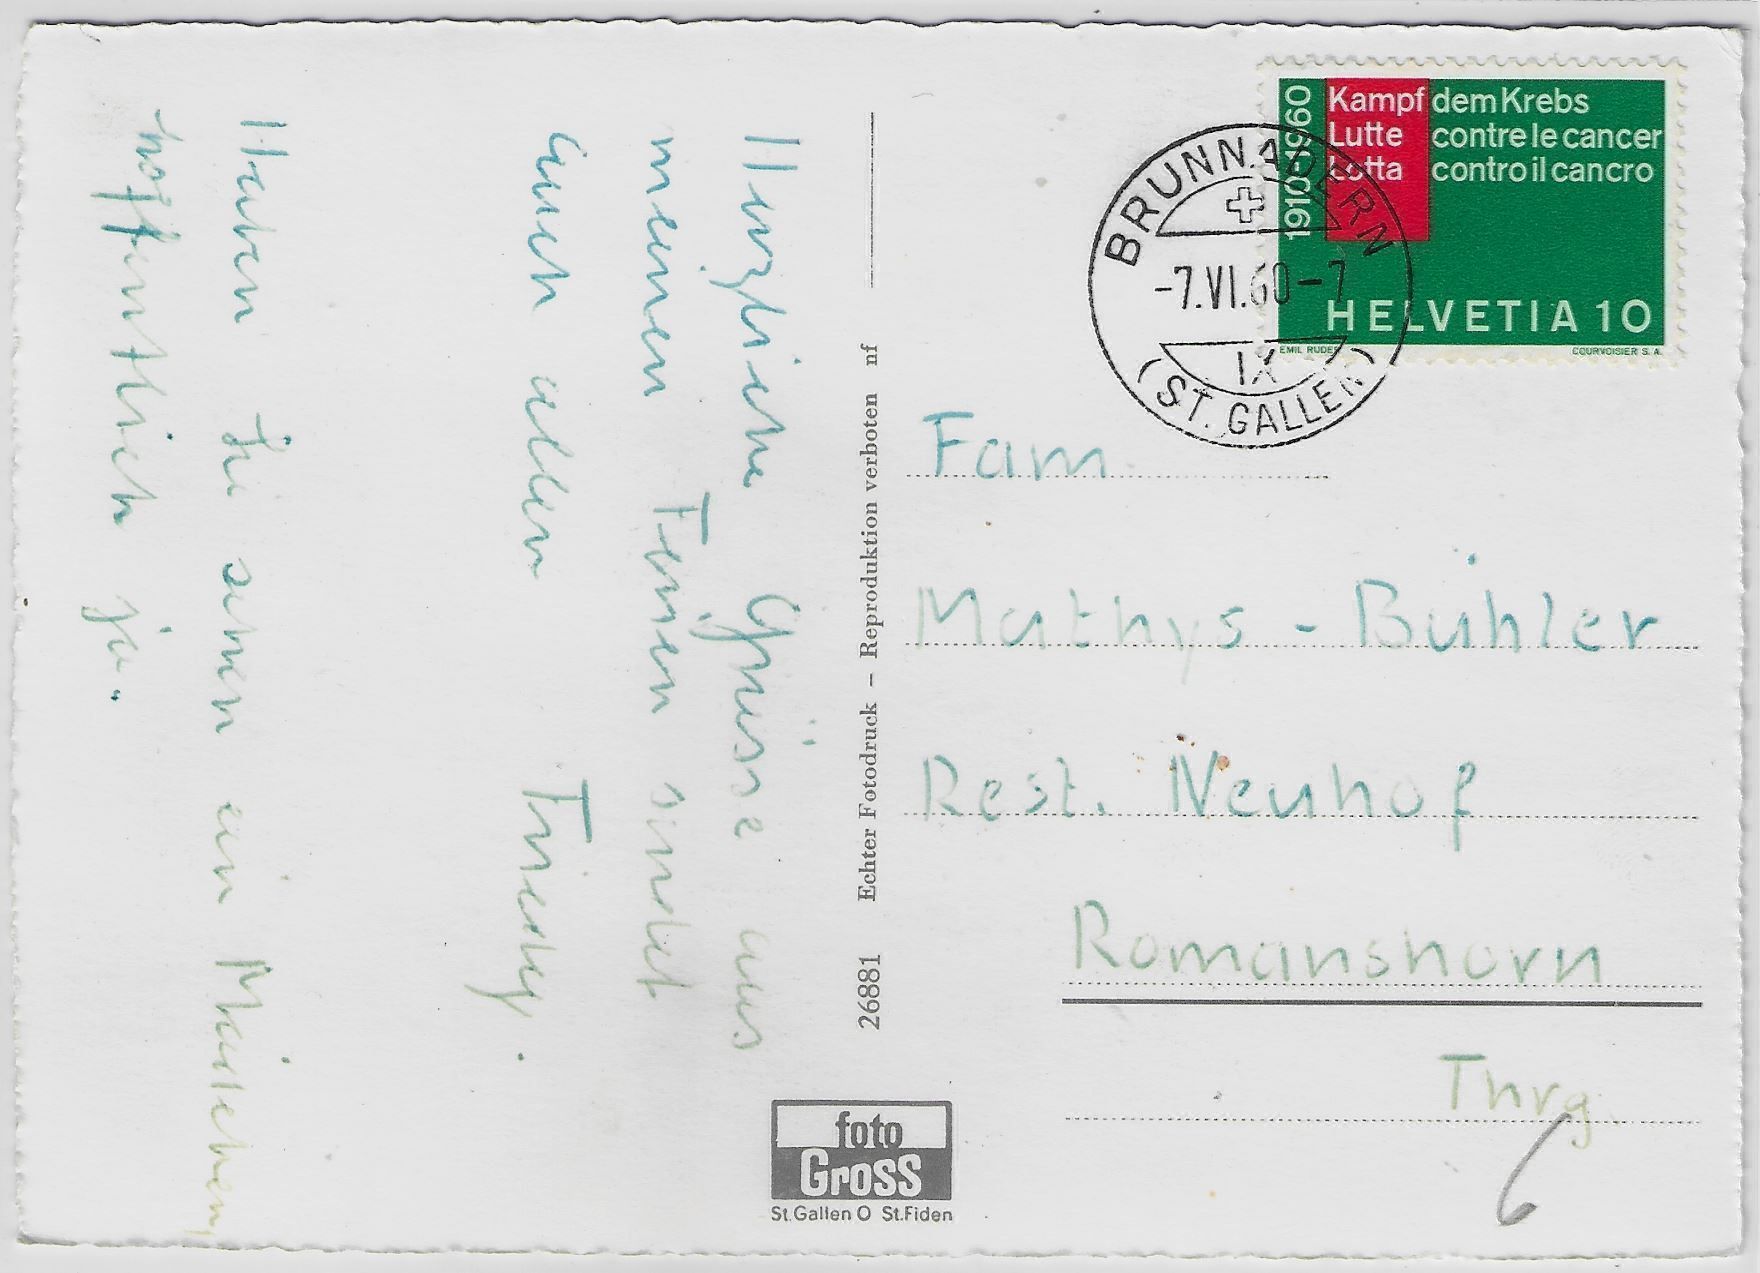 Herzliche Grüsse aus
meinen Ferien sendet
Euch allen
Friedy.
Haben Sie schon ein Mädchen,
hoffentlich ja.
26881 Echter Fotodruck – Reproduktion verboten nf
1910 1960
Kampf dem Krebs
Lutte contre le cancer
Lotta contro il cancro
HELVETIA 10
EMIL RUDER COURVOISIER S.A.
BRUNNADERN
-7.VI.60-7
IX
(ST. GALLEN)
Fam.
Mathys - Bühler
Rest. Neuhof
Romanshorn
Thrg.
6
foto
Gross
St.Gallen O St.Fiden